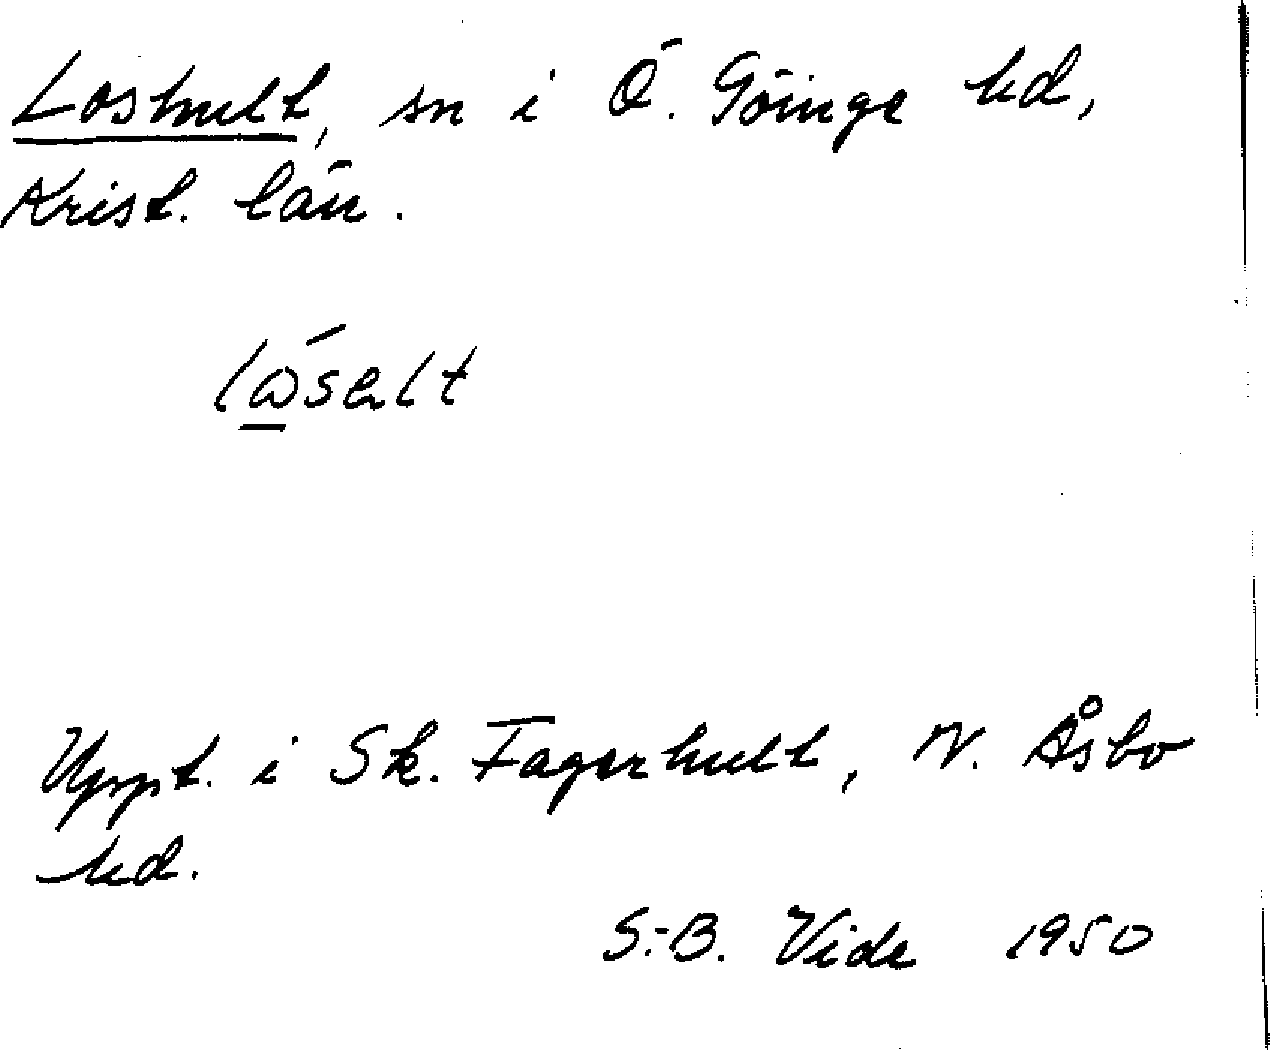 Loshult, sn i Ö. Göinge hd,
Krist. län.
Uppt. i Sk. Fagerhult, N. Åsbo
hd.
S.-B. Vide 1950